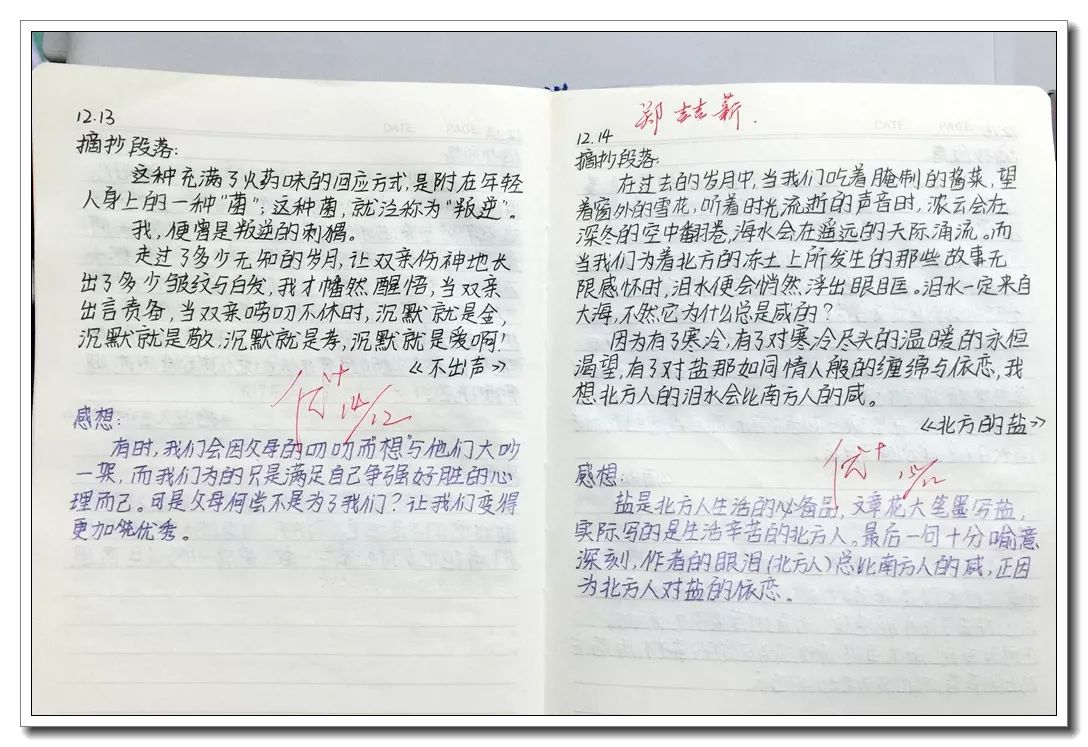 12.13
摘抄段落:
这种充满了火药味的回应方式,是附在年轻
人身上的一种“菌”;这种菌,就泛称为“叛逆”。
我,便曾是叛逆的刺猬。
走过了多少无知的岁月,让双亲伤神地长
出了多少皱纹与白发,我才幡然醒悟,当双亲
出言责备,当双亲唠叨不休时,沉默就是金,
沉默就是敬,沉默就是孝,沉默就是爱啊!
《不出声》
优+
14/12
感想:
有时,我们会因父母的叨叨而“想”与他们大吵
一架,而我们为的只是满足自己争强好胜的心
理而已。可是父母何尝不是为了我们?让我们变得
更加优秀。
郑喆薪.
12.14
DATE PAGE
摘抄段落:
在过去的岁月中,当我们吃着腌制的酱菜,望
着窗外的雪花,听着时光流逝的声音时,浓云会在
深冬的空中翻卷,海水会在遥远的天际涌流。而
当我们为着北方的冻土上所发生的那些故事无
限感怀时,泪水便会悄然浮出眼眶。泪水一定来自
大海,不然它为什么总是咸的?
因为有了寒冷,有了对寒冷尽头的温暖的永恒
渴望,有了对盐那如同情人般的缠绵与依恋,我
想北方人的泪水会比南方人的咸。
《北方的盐》
优+
15/12
感想:
盐是北方人生活的必备品,文章花大笔墨写盐,
实际写的是生活辛苦的北方人。最后一句十分喻意
深刻,作者的眼泪(北方人)总比南方人的咸,正因
为北方人对盐的依恋。